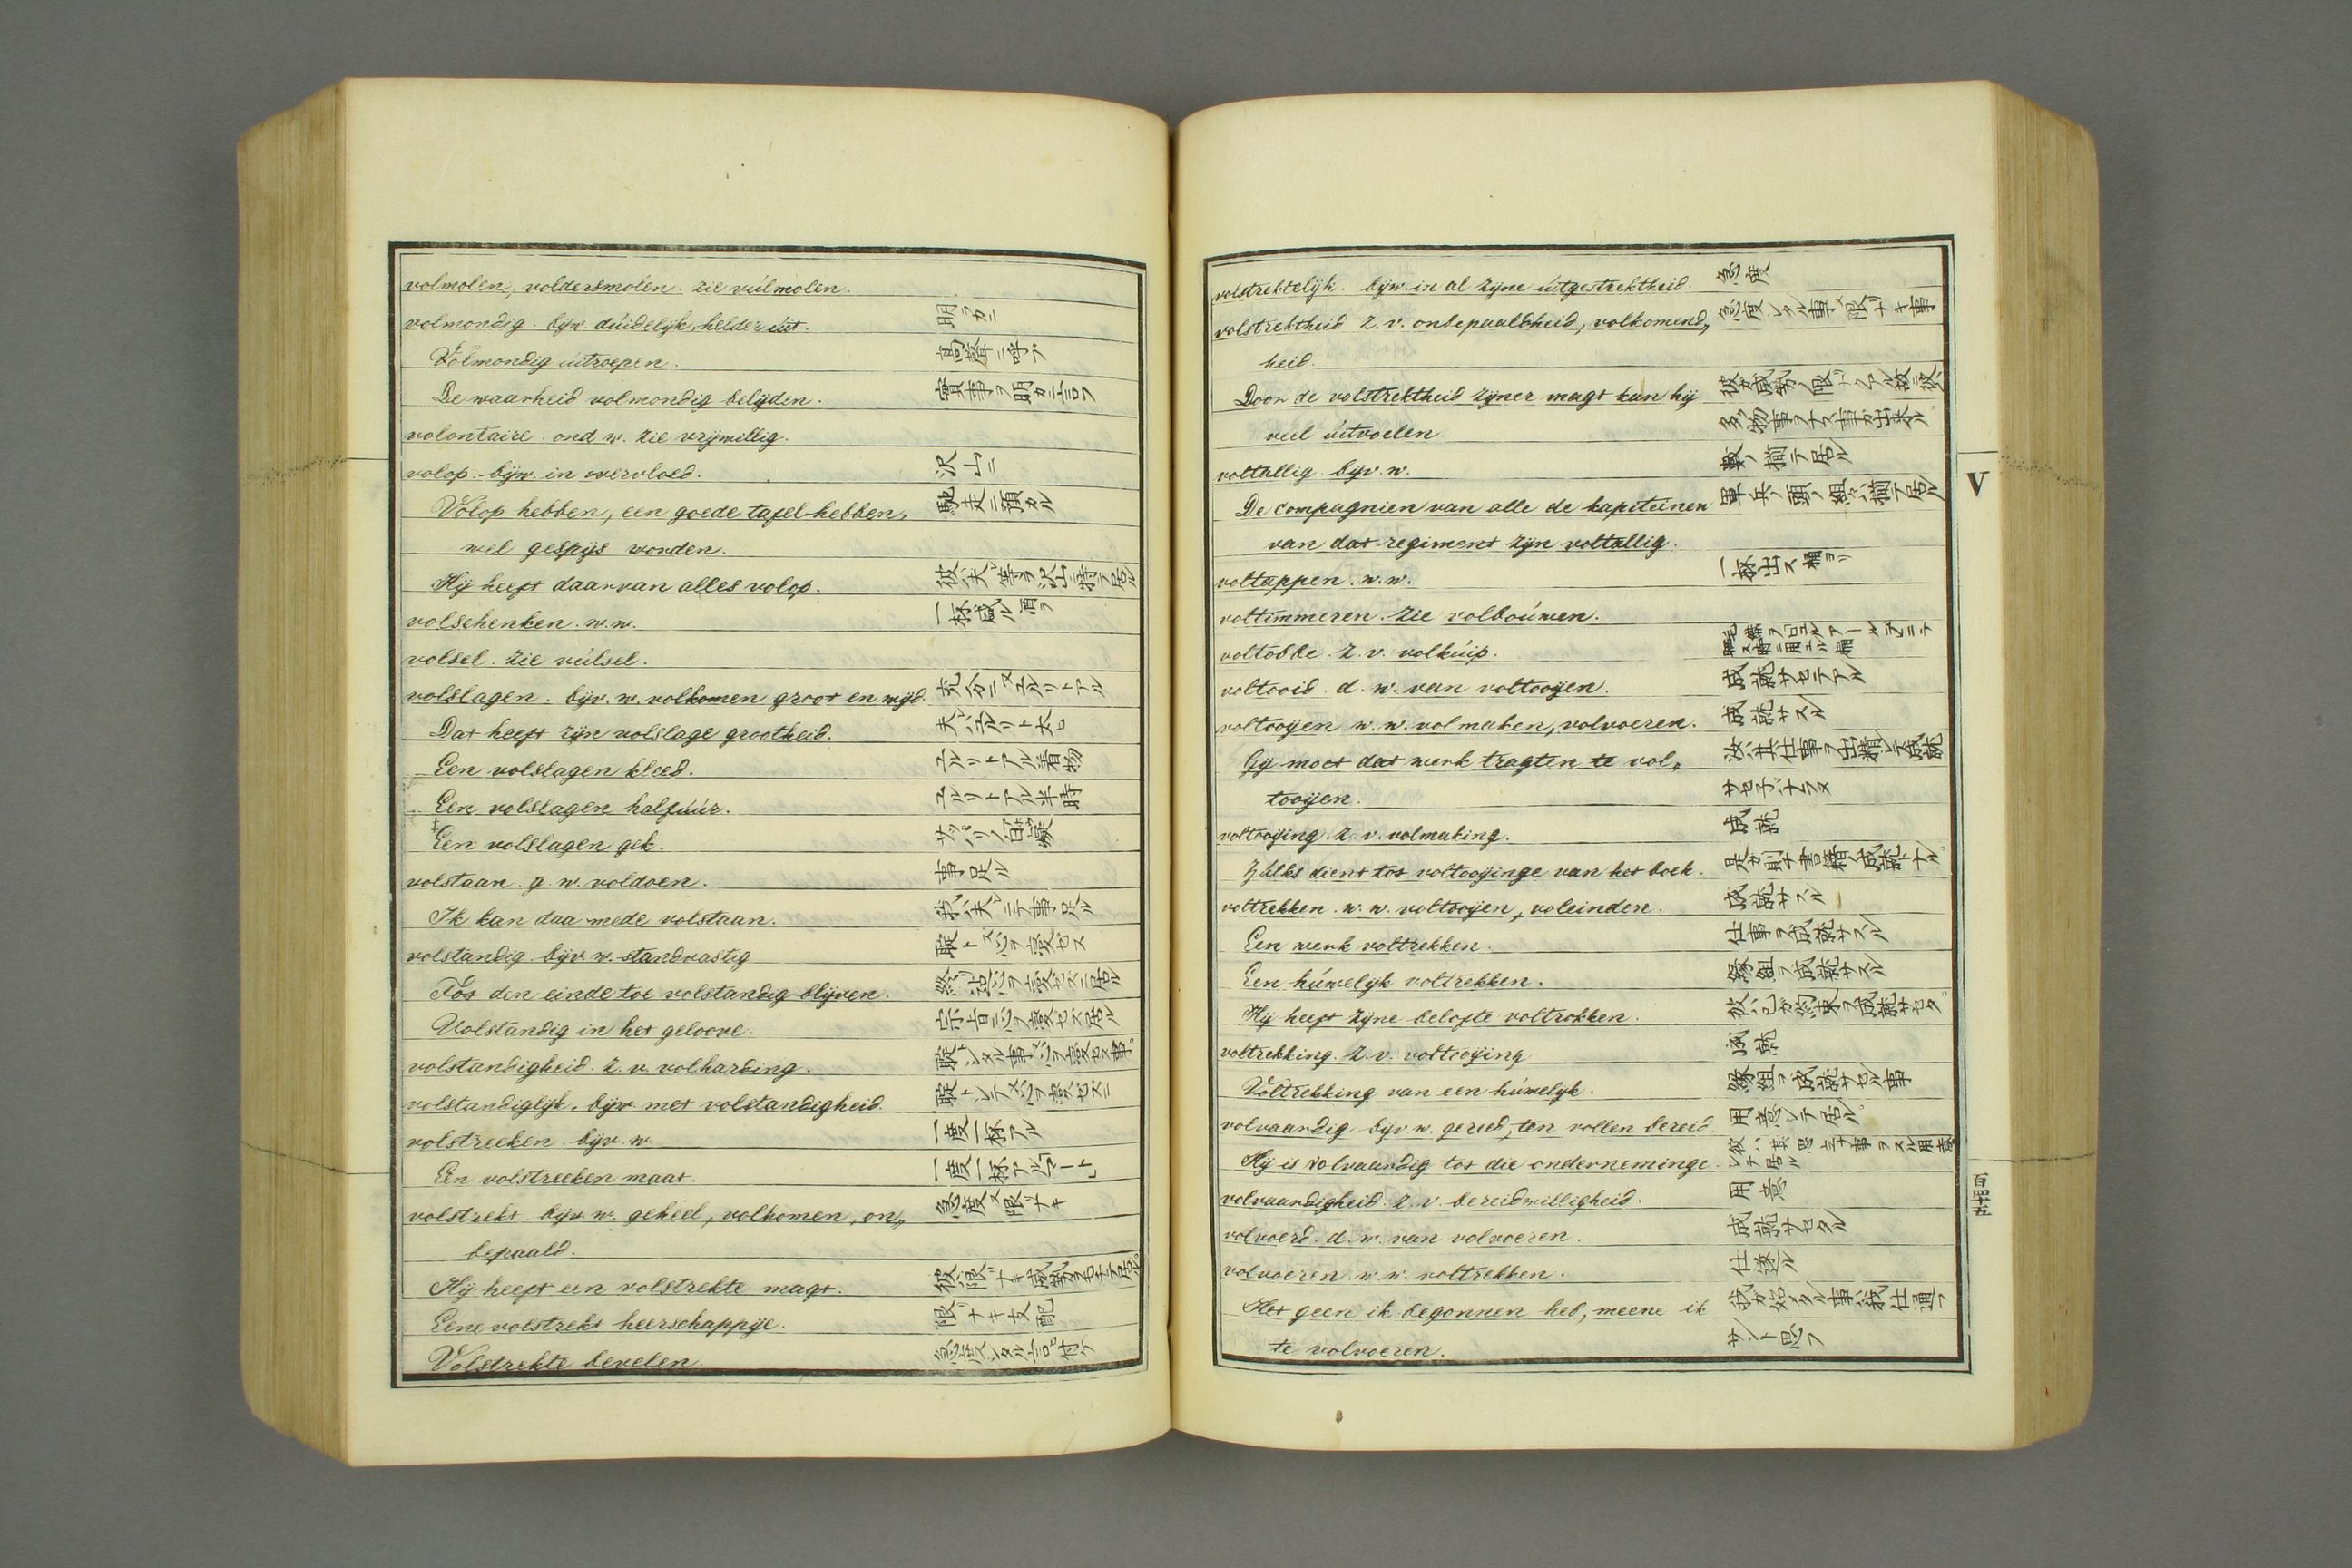 volmolen, voldersmolen. zie vúlmolen.
volmondig. bijw. dúidelijk, helder úit. 明カニ
Volmondig uitroepen. 高聲ニ呼フ
De waarheid volmondig belijden. 實事ヲ明カニ言フ
volontaire. ond w. zie vrijwillig.
volop. bijw. in overvloed. 沢山ニ
Volop hebben, een goede tafel hebben, 馳走ニ預カル
wel gespijs worden.
Hij heeft daarvan alles volop. 彼ハ夫レ等ヲ沢山ニ持テ居ル
volschenken. w.w. 一杯盛ル 酒ヲ
volsel. zie vúlsel.
volslagen. bijv. w. volkomen groot en wijd.
Dat heeft zijn volslage grootheid.
Een volslagen kleed. ユルリトアル着物
Een volslagen halfúúr. ユルリトアル半時
Een volslagen gek.
volstaan. g. w. voldoen. 事足ル
Ik kan daa mede volstaan. 我ハ夫レニテ事足ル
volstandig. bijv. w. standvastig
Tos den einde toe volstandig blijven.
Volstandig in het geloove.
volstandigheid. z. v. volharding.
volstandiglijk. bijw. met volstandigheid.
volstreeken. bijv. w. 一度一杯アル
Een volstreeken maat.
volstrekt. bijv. w. geheel, volkomen, on„ 急度 又 限リナキ
bepaald.
Hij heeft een volstrekte magt.
Eene volstrekt heerschappije. 限リナキ支配
Volstrekte bevelen. 急度シタル言付ケ
volstrektelijk. bijw. in al zijne úitgestrektheid. 急度
volstrektheid z. v. onbepaaldheid, volkomend„ 急度シタル事 又 限リナキ事
heid.
Door de volstrektheid zijner magt kan hij
veel úitvoelen. 多ノ物事ヲナス事ガ出来ル
voltallig. bijv. w. 數ノ揃テ居ル
De compagnien van alle de kapiteinen
van dat regiment zijn voltallig.
voltappen. w.w.
voltimmeren. zie volboúwen.
voltobbe. z. v. volkúip.
voltooid. d. w. van voltooijen. 成就サセテアル
voltooijen w. w. volmaken, volvoeren. 成就サスル
Gij moet dat werk tragten te vol„ 汝ハ其仕事ヲ出精シテ成就
tooijen. サセ子バナラヌ
voltooijing. z. v. volmaking. 成就
Zúlks dient tos voltooijinge van het boek.
voltrekken. w. w. voltooijen, voleinden. 成就サスル
Een werk voltrekken. 仕事ヲ成就サスル
Een húwelijk voltrekken. 縁組ヲ成就サスル
Hij heeft zijne belofte voltrokken. 彼ハ己ガ約束ヲ成就サセタ
voltrekking. z. v. voltooijing 成就
Voltrekking van een húwelijk. 縁組ヲ成就サセル事
volvaardig. bijv. w. gereed, ten vollen bereid 用意シテ居ル
Hij is volvaardig tos die onderneminge.
volvaardigheid. z. v. bereidwilligheid. 用意
volvoerd. d. w. van volvoeren. 成就サセタル
volvoeren. w. w. voltrekken. 仕遂ル
Het geen ik begonnen heb, meene ik 我ガ始メタル事ハ我仕通フ
te volvoeren. サント思フ
V